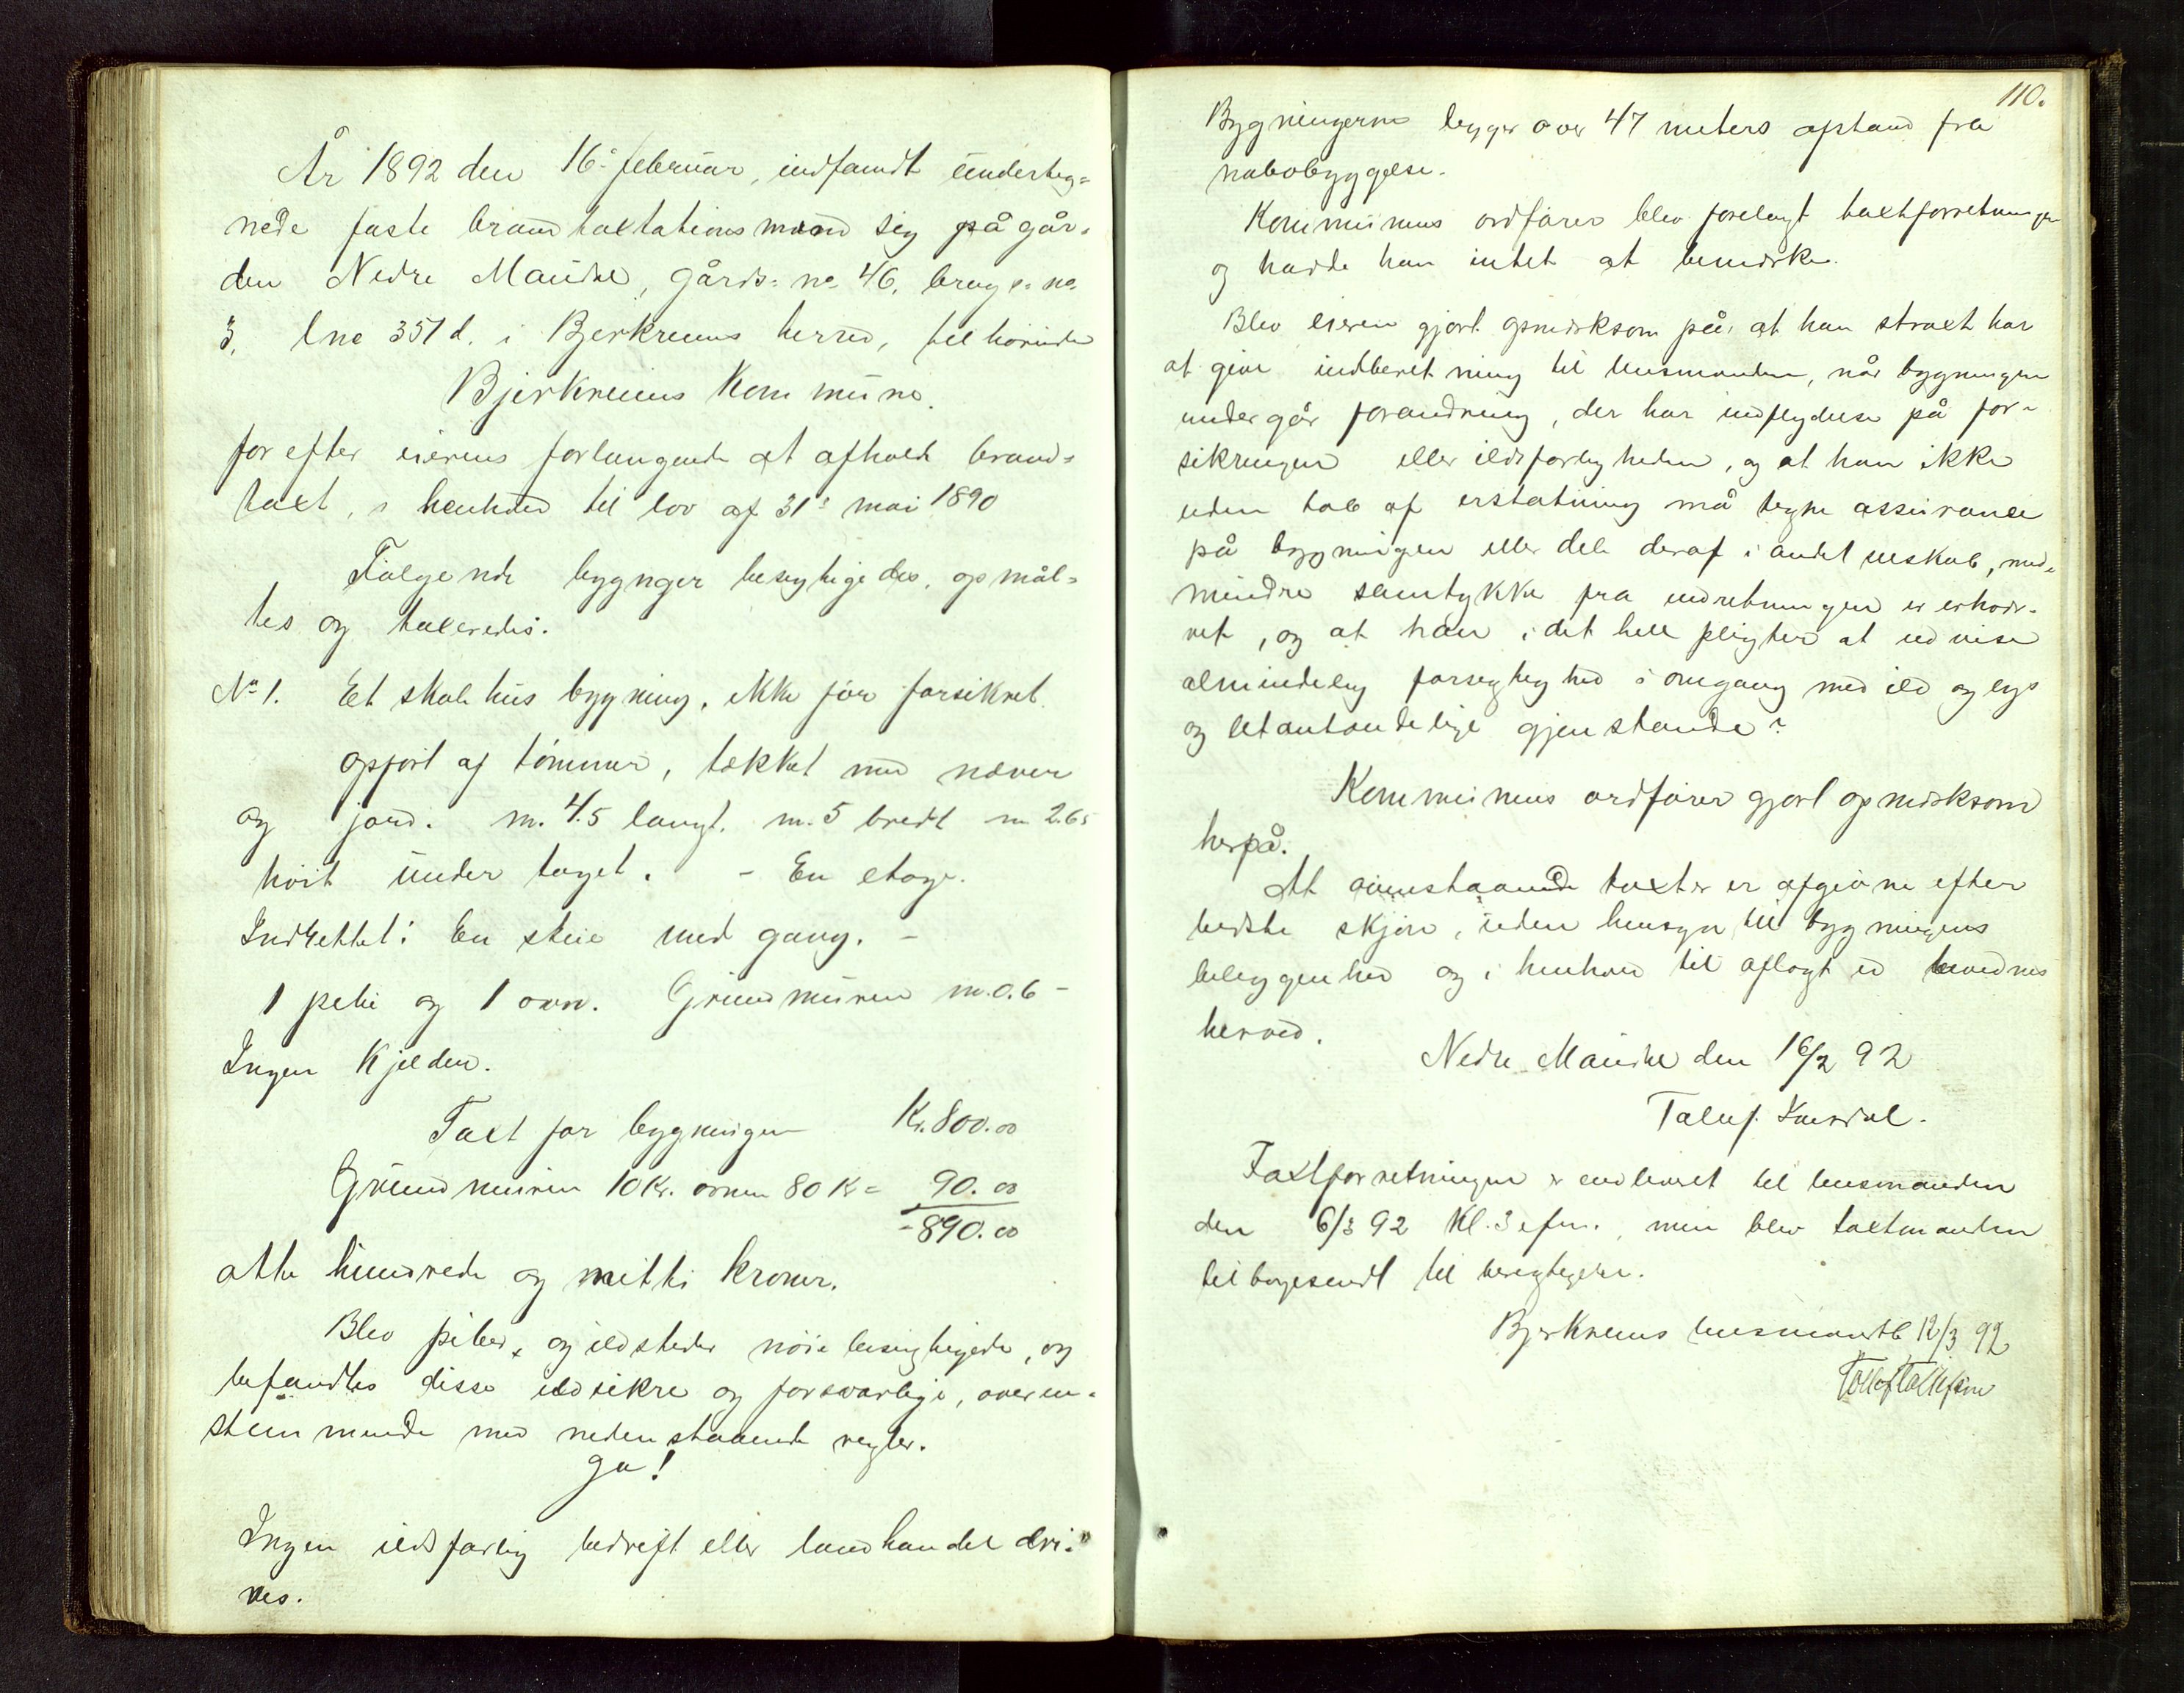 År 1892 den 16. februar, indfandt underteg=
nede faste brandtaxtationsmænd sig på går=
den Nedre Maudal, gårds= no 46. brugs= no
3, lno 351 d. i Bjerkreims herred, tilhørende
Bjerkreims Kommune.
for efter eierens forlangende at afholde brand=
taxt, i henhold til lov af 31: mai 1890
Følgende bygnger besigtigedes, opmål=
tes og taxeredes.
No 1. Et skolehus bygning, ikke før forsikret
opført af tømmer, tækket med næver
og jord. m. 7.5 langt. m. 5 bredt m 2.65
høit under taget. - En etage.
Indrettet: En stue med gang. -
1 pebe og 1 ovn. Grundmuren m. 0.6 -
Ingen Kjelder.
Taxt for bygningen Kr. 800.00
Grundmuren 10 Kr. ovnen 80 Kr = 90.00
- 890.00
otte hundrede og nitti kroner.
Blev piber, og ildsteder nøie besigtigede, og
befandtes disse ildsikre og forsvarlige, overen=
stemmende med nedenstaaende regler.
Ja!
Ingen ildsfarlig bedrift eller landhandel dri=
ves.
110.
Bygningerne ligger over 47 meters afstand fra
nabobyggelse.
Kommunens ordfører blev forelagt taxtforretningen
og havde han intet at bemærke.
Blev eieren gjort opmærksom på, at han straxt har
at give indberetning til lensmanden, når bygningen
undergår forandring, der har indflydelse på for=
sikringen eller ildsfarligheden, og at han ikke
uden tab af erstatning må tegne assurance
på bygningen eller dele deraf i andet selskab, med=
mindre samtykke fra indretningen er erhver=
vet, og at han i det hele pligter at udvise
almindelig forsigtighed i omgang med ild og lys
og letantændelige gjenstande?
Kommunens ordfører gjort opmærksom
herpå.
At ovenstaaende taxter er afgivne efter
bedste skjøn, uden hensyn til bygningens
beliggenhed og i henhold til aflagt ed bevidnes
herved.
Nedre Maudal den 16/2 92
Taxtforretningen er indleveret til lensmanden
den 6/3 92 Kl. 3 efm., men blev taxtmanden
tilbagesendt til berigtigelse.
Bjerkreims lensmandsb 12/3 92
Tollef Tollefsen